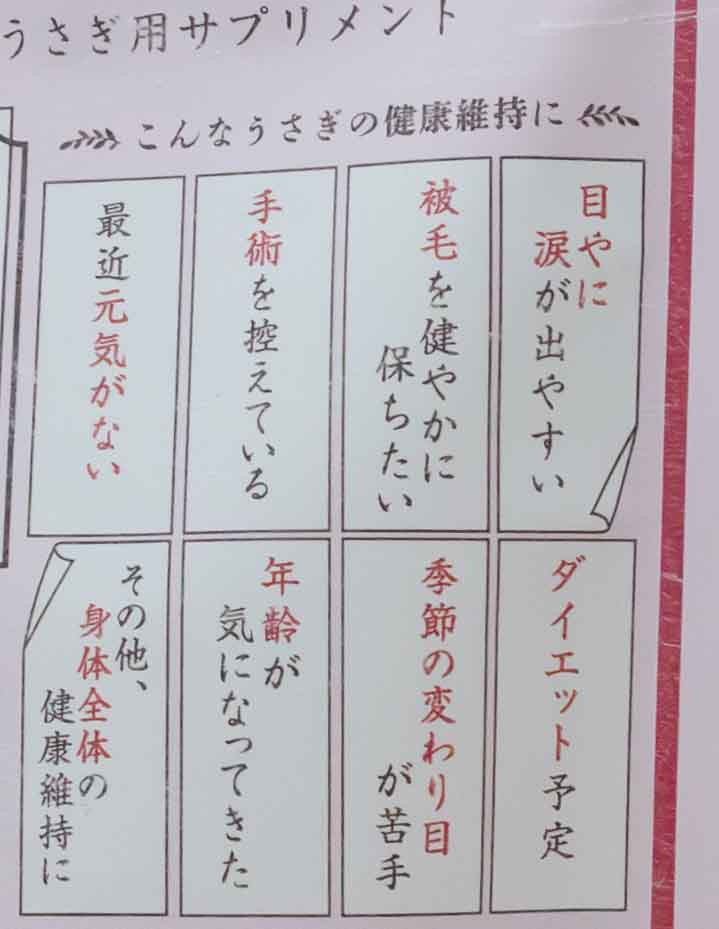 うさぎ用サプリメント
こんなうさぎの健康維持に
目やに
涙が出やすい
被毛を健やかに
保ちたい
手術を控えている
最近元気がない
ダイエット予定
季節の変わり目
が苦手
年齢が
気になってきた
その他、
身体全体の
健康維持に